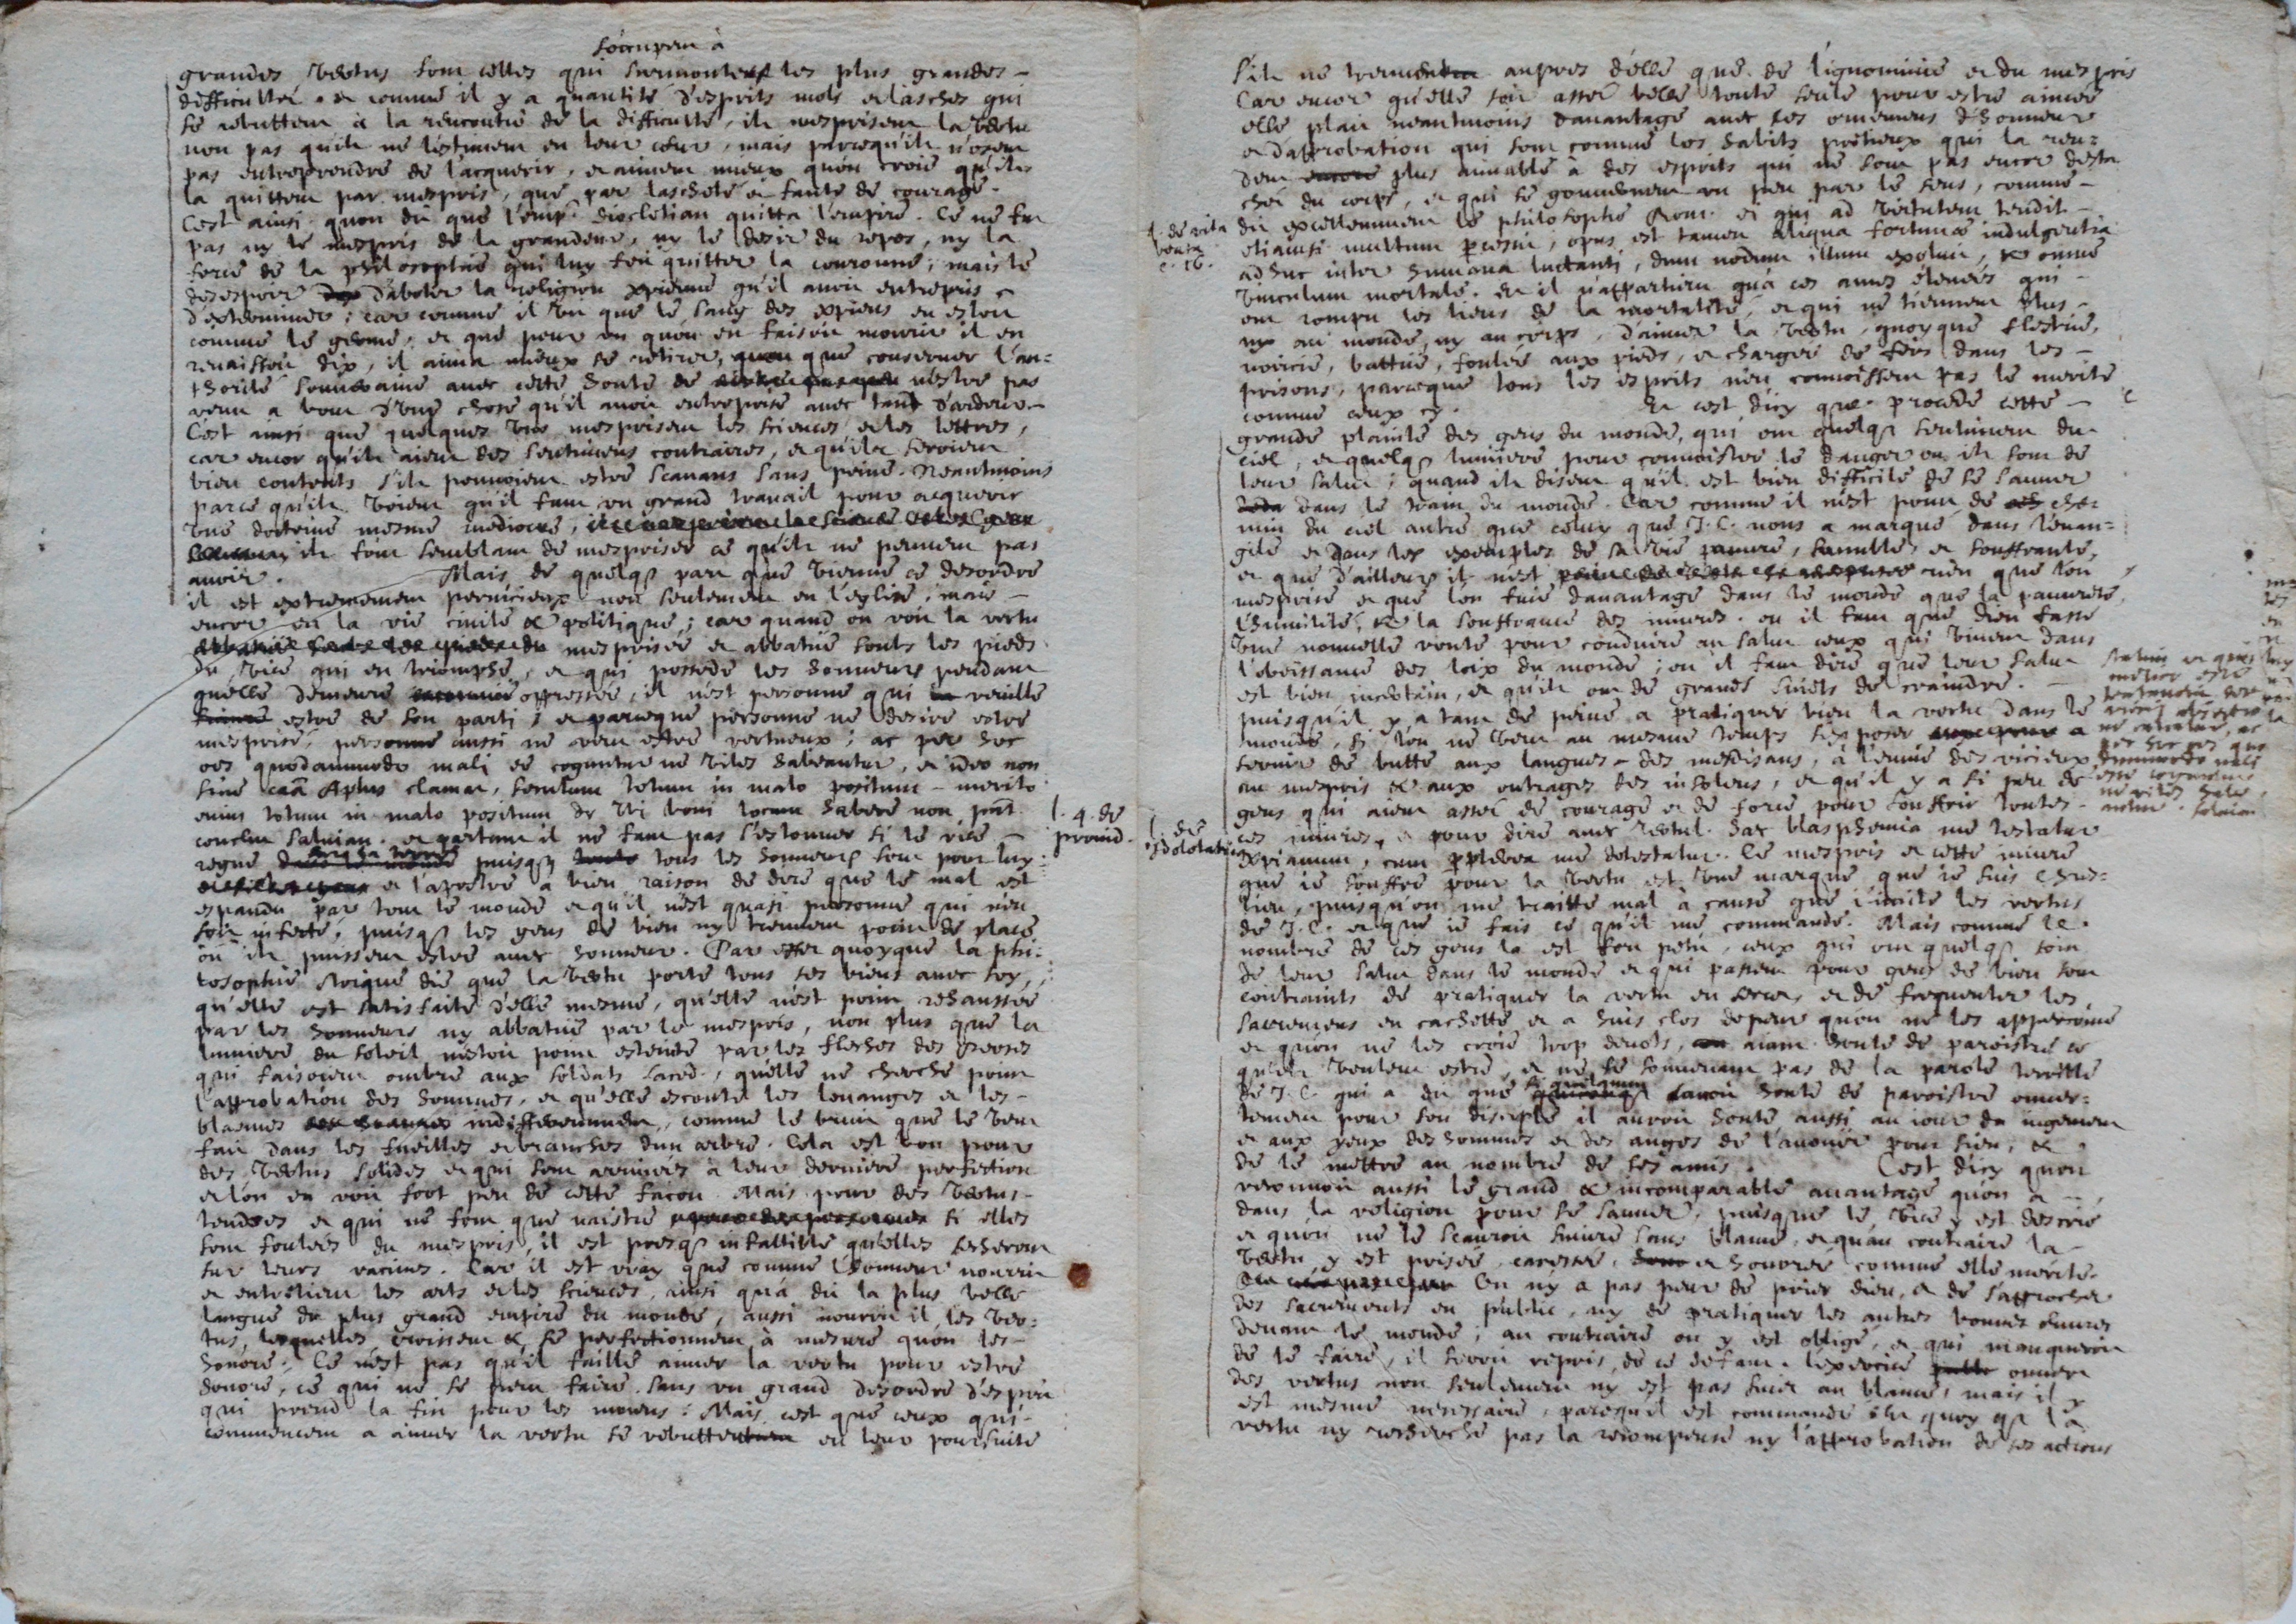 s'occupent à
grandes vertus sont celles qui surmontent les plus grandes
difficultés. et comme il y a quantité d'esprits mols et lasches qui
se rebuttent à la rencontre de la difficulté, ils mesprisent la vertu
non pas quils ne l'estiment en leur coeur, mais parcequ'ils n'osent
pas entreprendre de l'acquerir, et aiment mieux quon croie qu'ils
la quittent par mespris, que par lascheté et faute de courage.
C'est ainsi quon dit que l'emp. diocletian quitta l'empire. Ce ne fut
pas ny le mespris de la grandeur, ny le desir du repos, ny la
force de la philosophie qui luy feit quitter la couronne, mais le
desespoir d'abolir la religion xpienne qu'il avoit entrepris
d'exterminer; car comme il vit que le sang des xpiens en estoit
comme le germe, et que pour un quon en faisoit mourir il en
renaissoit dix, il aima mieux se retirer, que conserver l'au=
thorité souveraine avec cette honte de n'estre pas
venu a bout d'une chose qu'il avoit entreprise avec tant d'ardeur.
C'est ainsi que quelques uns mesprisent les sciences et les lettres,
car encor qu'ils aient des sentimens contraires, et qu'ils seroient
bien contents s'ils pouvoient estre scavans sans peine. Neantmoins
parce qu'ils voient qu'il faut un grand travail pour acquerir
une doctrine mesme mediocre,
ils font semblant de mespriser ce qu'ils ne peuvent pas
avoir. Mais de quelq part que vienne ce desordre
il est extremement pernicieux non seulement en l'eglise, mais
encor en la vie civile et politique; car quand on voit la vertu
mesprisée et abbatue soubs les pieds
du vice qui en triomphe, et qui possede les honneurs pendant
quelle demeure oppressée, il n'est personne qui veuille
estre de son parti; et parceque personne ne desire estre
mesprisé, personne aussi ne veut estre vertueux; ac per hoc
oes quodammodo mali ee coguntur ne viles habeantur, et ideo non
sine caâ Aplus clamat, seculum totum in malo positum merito
enim totum in malo positum dr ubi boni locum habere non pñt.
conclut Salvian. et partant il ne faut pas s'estonner si le vice
regne sur la terre puisq tous les honneurs sont pour luy
et l'apostre a bien raison de dire que le mal est
espandu par tout le monde et qu'il n'est quasi personne qui n'en
soit infecté, puisq les gens de bien ny trouvent point de place
où ils puissent estre avec honneur. Car en effet quoyque la phi=
losophie stoique die que la vertu porte tous ses biens avec soy,
qu'elle est satisfaite d'elle mesme, qu'elle n'est point rehaussée
par les honneurs ny abbatue par le mespris, non plus que la
lumiere du soleil n'estoit point esteinte par les flesches des Perses
qui faisoient ombre aux soldats Laced., quelle ne cherche point
l'approbation des hommes, et qu'elle escoute les louanges et les
blasmes indifferemment, comme le bruit que le vent
fait dans les fueilles et branches d'un arbre. Cela est bon pour
des vertus solides et qui sont arrivées à leur derniere perfection
et l'on en voit fort peu de cette facon. Mais pour des vertus
tendres et qui ne font que naistre si elles
sont foulées du mespris, il est presq infallible qu'elles secheront
sur leurs racines. Car il est vray que comme l'honneur nourrit
et entretient les arts et les sciences, ainsi qu'a dit la plus belle
langue du plus grand empire du monde, aussi nourrit il les ver=
tus, lesquelles croissent et se perfectionnent à mesure quon les
honore. Ce n'est pas qu'il faille aimer la vertu pour estre
honoré, ce qui ne se peut faire sans un grand desordre d'esprit
qui prend la fin pour les moiens: Mais cest que ceux qui
commencent a aimer la vertu se rebuttent en leur poursuite
l. 4. de
provid.
S'ils ne trouvent aupres d'elle que de l'ignominie et du mespris
Car encor qu'elle soit assez belle toute seule pour estre aimée
elle plait neantmoins davantage avec les ornemens d'honneur
et d'approbation qui sont comme les habits pretieux qui la ren=
dent plus aimable à des esprits qui ne sont pas encor desta
chés du corps, et qui se gouvernent un peu par le sens, comme
l. de vita
beata
c. 16.
dit excellemment le philosophe Rom. et qui ad virtutem tendit
etiamsi multum processit, opus est tamen aliqua fortunæ indulgentia
adhuc inter humana luctanti, dum nodum illum exolvit, et omne
vinculum mortale. Et il n'appartient qu'à ces ames élevées qui
ont rompu les liens de la mortalité, et qui ne tiennent plus
ny au monde, ny au corps, d'aimer la vertu, quoyque flestrie,
noircie, battue, foulée aux pieds, et chargée de fers dans les
prisons, parceque tous les esprits n'en connoissent pas le merite
comme ceux cy. Et cest d'icy que procede cette
grande plainte des gens du monde, qui ont quelq sentiment du
ciel, et quelq lumiere pour connoistre le danger où ils sont de
leur salut, quand ils disent qu'il est bien difficile de se sauver
dans le train du monde. Car comme il n'est point de che=
min du ciel autre que celuy que J.C. nous a marqué dans l'evan=
gile et dans les exemples de sa vie pauvre, humble, et souffrante,
et que d'ailleurs il n'est rien que l'on
mesprise et que l'on fuie davantage dans le monde que la pauvreté,
l'humilité, et la souffrance des injures. ou il faut que dieu fasse
une nouvelle route pour conduire au salut ceux qui vivent dans
l'obeissance des loix du monde; ou il faut dire que leur salut
est bien incertain, et qu'ils ont de grands subiets de craindre.
puisqu'il y a tant de peine a pratiquer bien la vertu dans le
monde, si l'on ne veut au mesme temps s'exposer a
servir de butte aux langues des mesdisans, à l'envie des vicieux
au mespris et aux outrages des insolens, et qu'il y a si peu de
gens qui aient assez de courage et de force pour souffrir toutes
l. de
idololatr.
ces injures, et pour dire avec Tertul. hæc blasphemia me testatur
xpianum, cum propterea me detestatur. Ce mespris et cette injure
que je souffre pour la vertu est une marque que je suis Chres=
tien, puisqu'on me traitte mal à cause que j'imite les vertus
de J.C. et que je fais ce qu'il me commande. Mais comme le
nombre de ces gens la est fort petit, ceux qui ont quelq soin
de leur salut dans le monde et qui passent pour gens de bien sont
contraints de pratiquer la vertu en secret, et de frequenter les
sacremens en cachette et a huis clos de peur quon ne les appercoive
et quon ne les croie trop devots, aiant honte de paroistre ce
qu'ils veulent estre, et ne se souvenant pas de la parole terrible
de J.C. qui a dit que si quelquun avoit honte de paroistre ouver=
tement pour son disciple il auroit honte aussi au jour du jugement
et aux yeux des hommes et des anges de l'avouer pour sien, et
de le mettre au nombre de ses amis. C'est d'icy quon
reconnoit aussi le grand et incomparable avantage quon a
dans la religion pour se sauver, puisque le vice y est descrié
et quon ne le scauroit suivre sans blame, et quau contraire la
vertu y est prisée, caressée, et honorée comme elle merite.
On n'y a pas peur de prier dieu, et de s'approcher
des sacrements en public, ny de pratiquer les autres bonnes oeuvres
devant le monde; au contraire on y est obligé, et qui manqueroit
de le faire, il seroit repris de ce defaut. l'exercice ouvert
des vertus non seulement n'y est pas suiet au blame, mais il y
est mesme necessaire, parcequ'il est commandé. Et quoy q la
vertu ny recherche pas la recompense ny l'approbation de ses actions